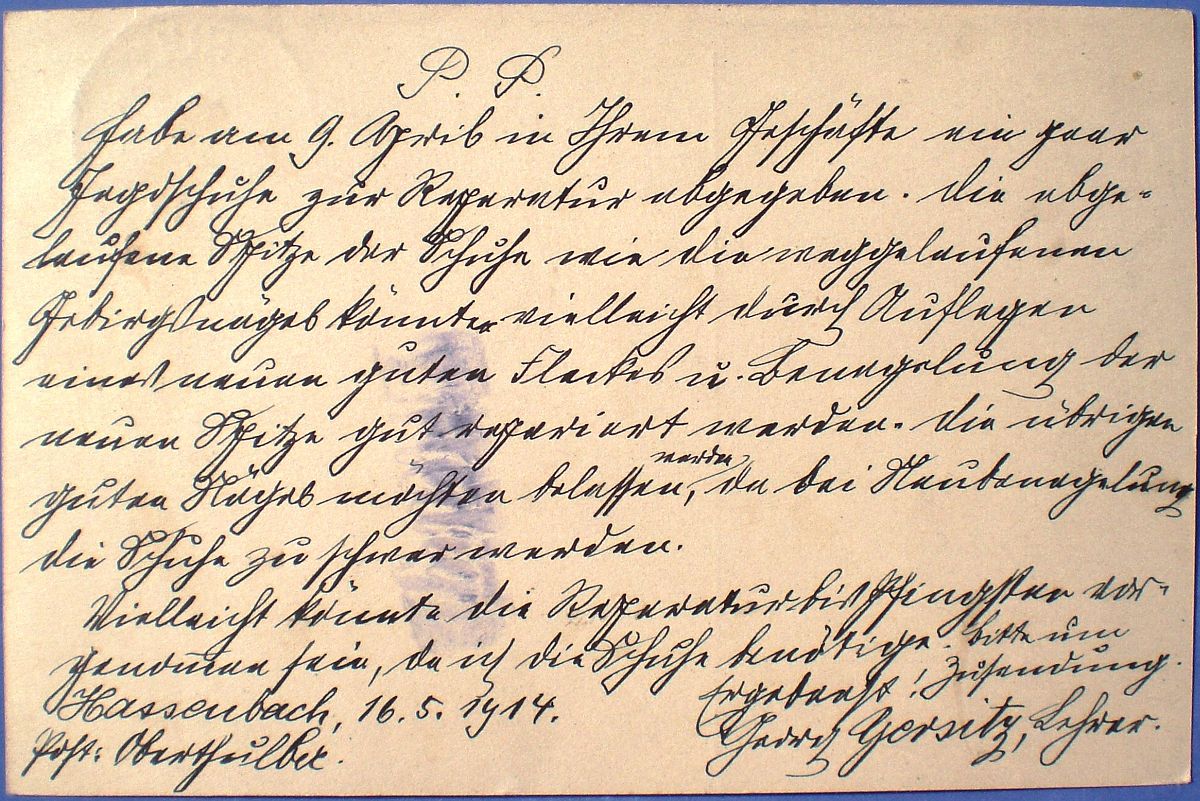 P. P.
Habe am 9. April in Ihrem Geschäfte ein paar
Jagdschuhe zur Reparatur abgegeben. Die abge-
laufene Spitze der Schuhe wie die weggelaufenen
Gebirgsnägel könnten vielleicht durch Auflegen
eines neuen guten Fleckes u. Benagelung der
neuen Spitze gut repariert werden. Die übrigen
guten Nägel möchten belassen werden, da bei Neubenagelung
die Schuhe zu schwer werden.
Vielleicht könnte die Reparatur bis Pfingsten vor-
genommen sein, da ich die Schuhe benötige. Bitte um
Zusendung.
Hassenbach, 16.5.1914.
Post: Oberthulba.
Ergebenst!
Georg Gersitz, Lehrer.